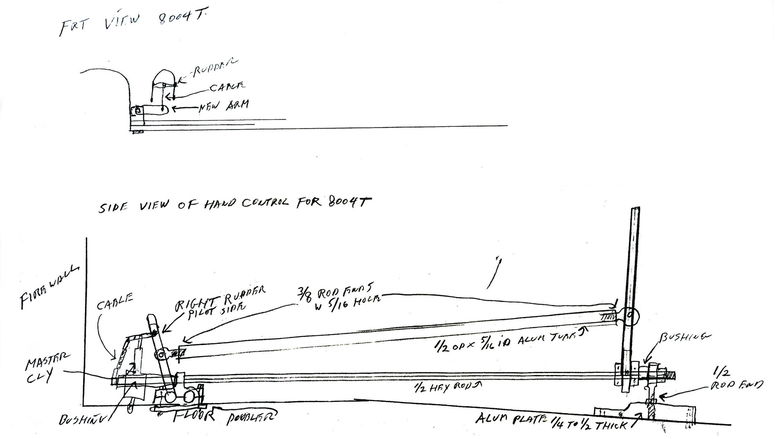 FRT VIEW 8004T.
RUDDER
CABLE
NEW ARM
SIDE VIEW OF HAND CONTROL FOR 8004T
FIREWALL
CABLE
RIGHT RUDDER
PILOT SIDE
3/8 ROD ENDS
W 5/16 HOLE
1/2 OD X 5/16 ID ALUM TUBE
BUSHING
MASTER
CLY
1/2 HEY ROD
1/2
ROD END
BUSHING
FLOOR
DOUBLER
ALUM PLATE 1/4 TO 1/2 THICK